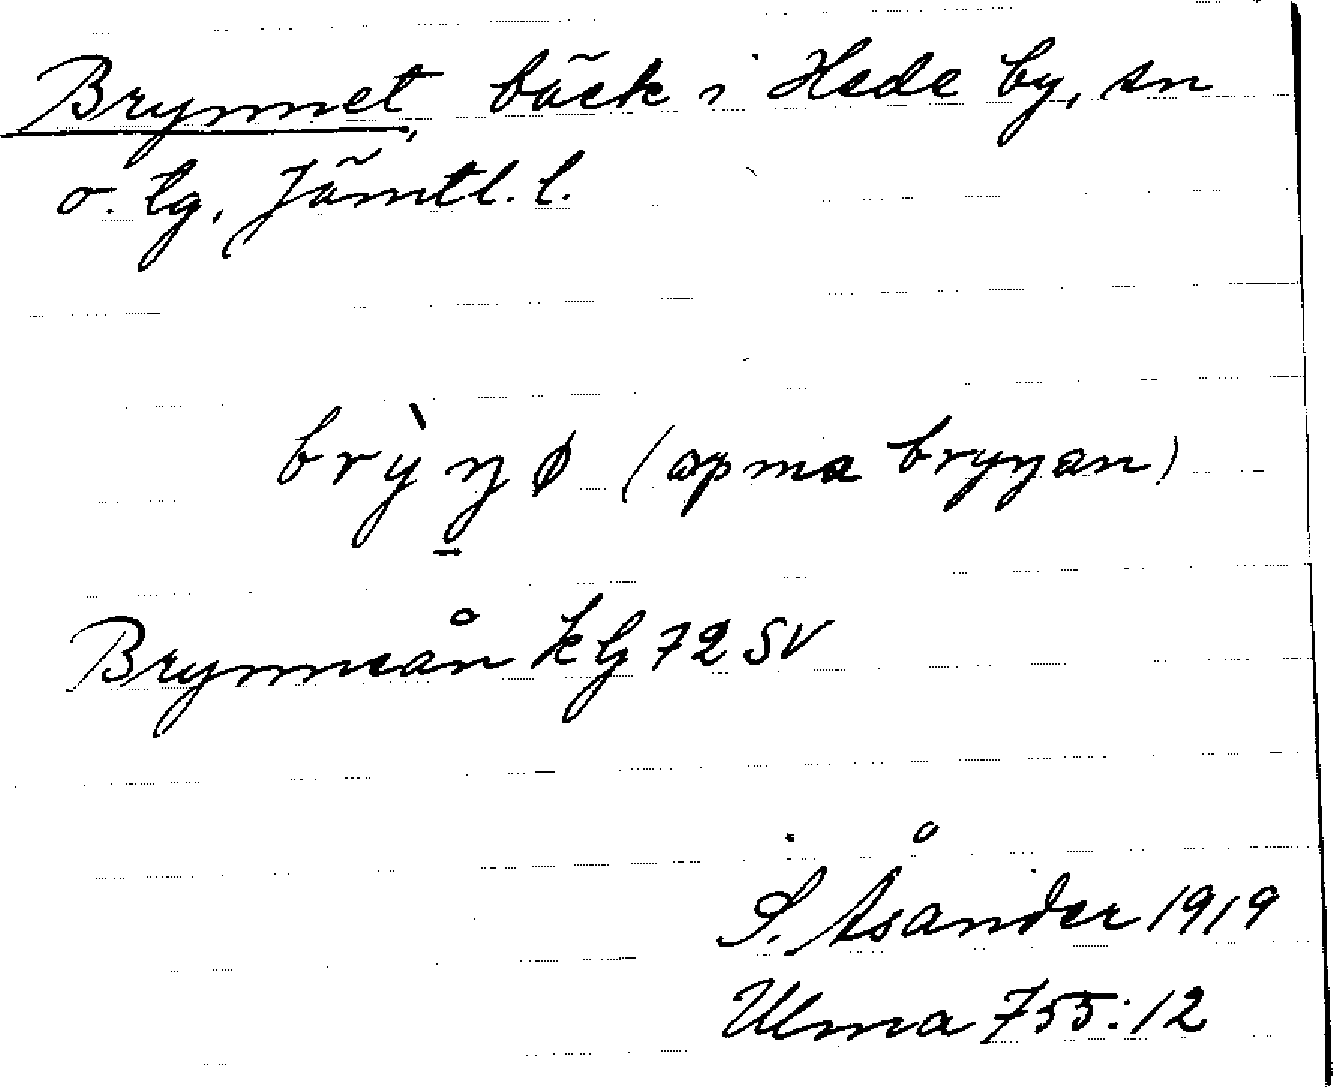 Brynnet, bäck i Hede by, sn
o. tg, Jämtl. l.
brỳŋø (apma bryŋan)
Brynnån kG 72 SV
S. Åsander 1919
Ulma 755:12